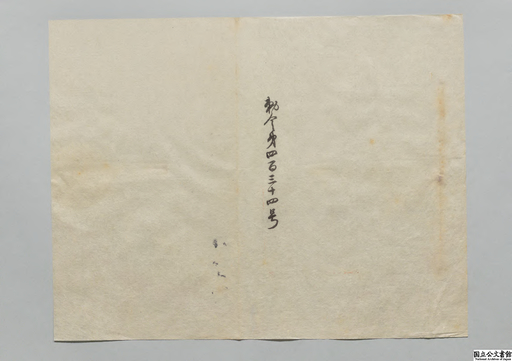 勅令第四百三十四号
国立公文書館
National Archives of Japan